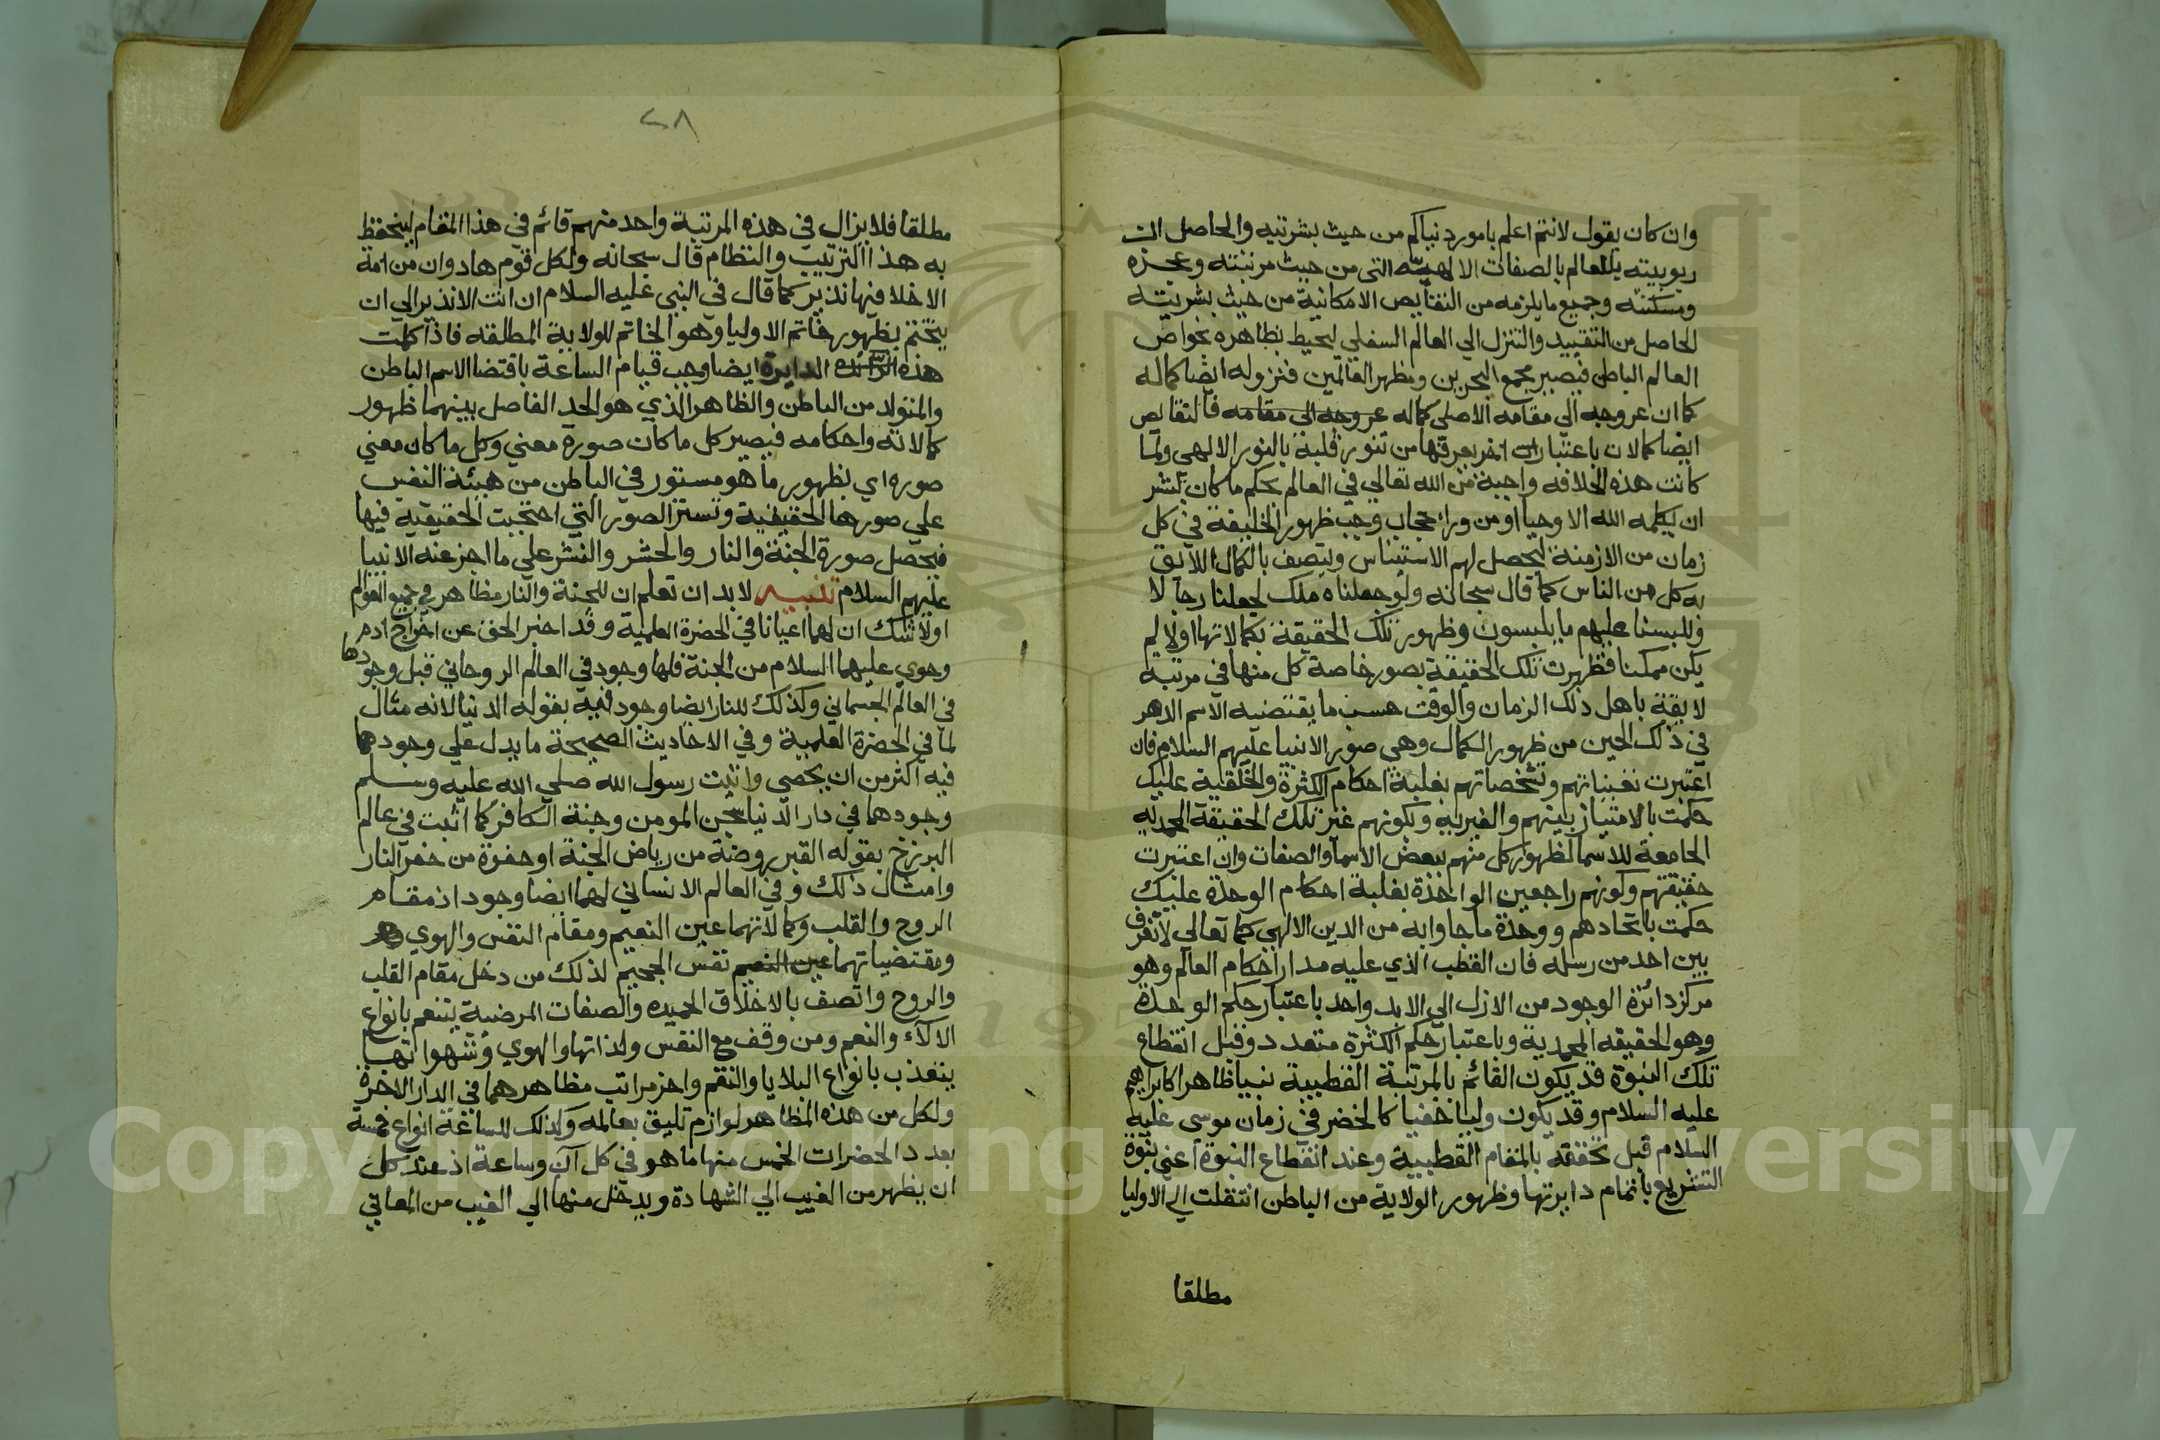 وان كان يقول لانتم اعلم بامور دنياكم من حيث بشريته والحاصل ان
ربوبيته للعالم بالصفات الالهيته التى من حيث مرتبته وعجزه
ومسكنته وجميع مايلزمه من النقايص الامكانية من حيث بشريته
الحاصل من التقييد والتنزل الي العالم السفلي ليحيط بظاهره بخواص
العالم الباطن فيصير مجمع البحرين ومظهر العالمين فنزوله ايضا كماله
كما ان عروجه الي مقامه الاصلي كماله عروجه الي مقامه فالنقايص
ايضا كمالات باعتبارات اخر يعرفها من تنور قلبه بالنور الالهي ولما
كانت هذه الخلافه واجبة من الله تعالي في العالم بحكم ما كان لبشر
ان يكلمه الله الا وحيا او من وراء حجاب وجب ظهور الخليفة في كل
زمان من الازمنة ليحصل لهم الاستيناس وليتصف بالكمال اللايق
به كل من الناس كما قال سبحانه ولو جعلناه ملك لجعلنا رجلا
وللبسنا عليهم ما يلبسون وظهور تلك الحقيقة بكمالاتها اولا لم
يكن ممكنا فظهرت تلك الحقيقة بصور خاصة كل منها في مرتبة
لايقة باهل ذلك الزمان والوقت حسب ما يقتضيه الاسم الدهر
في ذلك الحين من ظهور الكمال وهي صور الانبيا عليهم السلام فان
اعتبرت تعيناتهم وتشخصاتهم بغلبة احكام الكثرة والخلقية عليك
حكمت بالامتياز بينهم والغيريه وبكونهم غير تلك الحقيقة المحمديه
الجامعة للاسما لظهور كل منهم ببعض الاسما والصفات وان اعتبرت
حقيقتهم وكونهم راجعين الواحدة بغلبة احكام الوحدة عليك
حكمت باتحادهم ووحدة ما جاوا به من الدين الالهي كما تعالي لا نفرق
بين احد من رسله فان القطب الذي عليه مدار احكام العالم وهو
مركز دائرة الوجود من الازل الي الابد واحد باعتبار حكم الوحدة
وهو الحقيقه المحمدية وباعتبار حكم الكثرة متعدد وقبل انقطاع
تلك النبوة قد يكون القائم بالمرتبة القطبية نبيا ظاهرا كابراهيم
عليه السلام وقد يكون وليا خفيا كالخضر في زمان موسى عليه
السلام قبل تحققه بالمقام القطبية وعند انقطاع النبوة اعني نبوة
التشريع باتمام دايرتها وظهور الولاية من الباطن انتقلت الي الاوليا
مطلقا
٢٨
مطلقا فلا يزال في هذه المرتبة واحد منهم قائم في هذا المقام لينحفظ
به هذا الترتيب والنظام قال سبحانه ولكل قوم هاد وان من امة
الا خلا فيها نذير كما قال في النبي عليه السلام ان انت الا نذير الي ان
يختم بظهور خاتم الاوليا وهو الخاتم للولاية المطلقه فاذا كملت
هذه الدايرة ايضا وجب قيام الساعة باقتضا الاسم الباطن
والمتولد من الباطن والظاهر الذي هو الحد الفاصل بينهما ظهور
كمالاته واحكامه فيصير كل ما كان صورة معني وكل ما كان معني
صوره اي بظهور ما هو مستور في الباطن من هيئة النفس
علي صورها الحقيقية وتستر الصور التي احتجبت الحقيقية فيها
فيحصل صورة الجنة والنار والحشر والنشر علي ما اخبر عنه الانبيا
عليهم السلام تنبيه لابد ان تعلم ان للجنة والنار مظاهر في جميع العوالم
اولا شك ان لهما اعيانا في الحضرة العلمية وقد اخبر الحق عن اخراج ادم
وحوي عليهما السلام من الجنة فلها وجود في العالم الروحاني قبل وجودها
في العالم الجسماني وكذلك للنار ايضا وجود فيه بقوله الدنيا لانه مثال
لما في الحضرة العلمية وفي الاحاديث الصحيحة ما يدل علي وجودهما
فيه اكثر من ان يحصي واثبت رسول الله صلي الله عليه وسلم
وجودهما في دار الدنيا سجن المومن وجنة الكافر كما اثبت في عالم
البرزخ بقوله القبر روضة من رياض الجنة او حفرة من حفر النار
وامثال ذلك وفي العالم الانساني لهما ايضا وجود اذ مقام
الروح والقلب وكمالاتهما عين النعيم ومقام النفس والهوي
ومقتضياتهما عين النعيم نفس الجحيم لذلك من دخل مقام القلب
والروح واتصف بالاخلاق الحميده والصفات المرضية يتنعم بانواع
الالاء والنعم ومن وقف مع النفس ولذاتها والهوي وشهواتها
يتعذب بانواع البلايا والنقم واخر مراتب مظاهرهما في الدار الاخرة
ولكل من هذه المظاهر لوازم تليق بعالمه وكذلك للساعة انواع خمسة
بعدد الحضرات الخمس منها ما هو في كل آن وساعة اذ عند كل
ان يظهر من الغيب الي الشهادة ويدخل منها الي الغيب من المعاني
Copyright © King Saud University